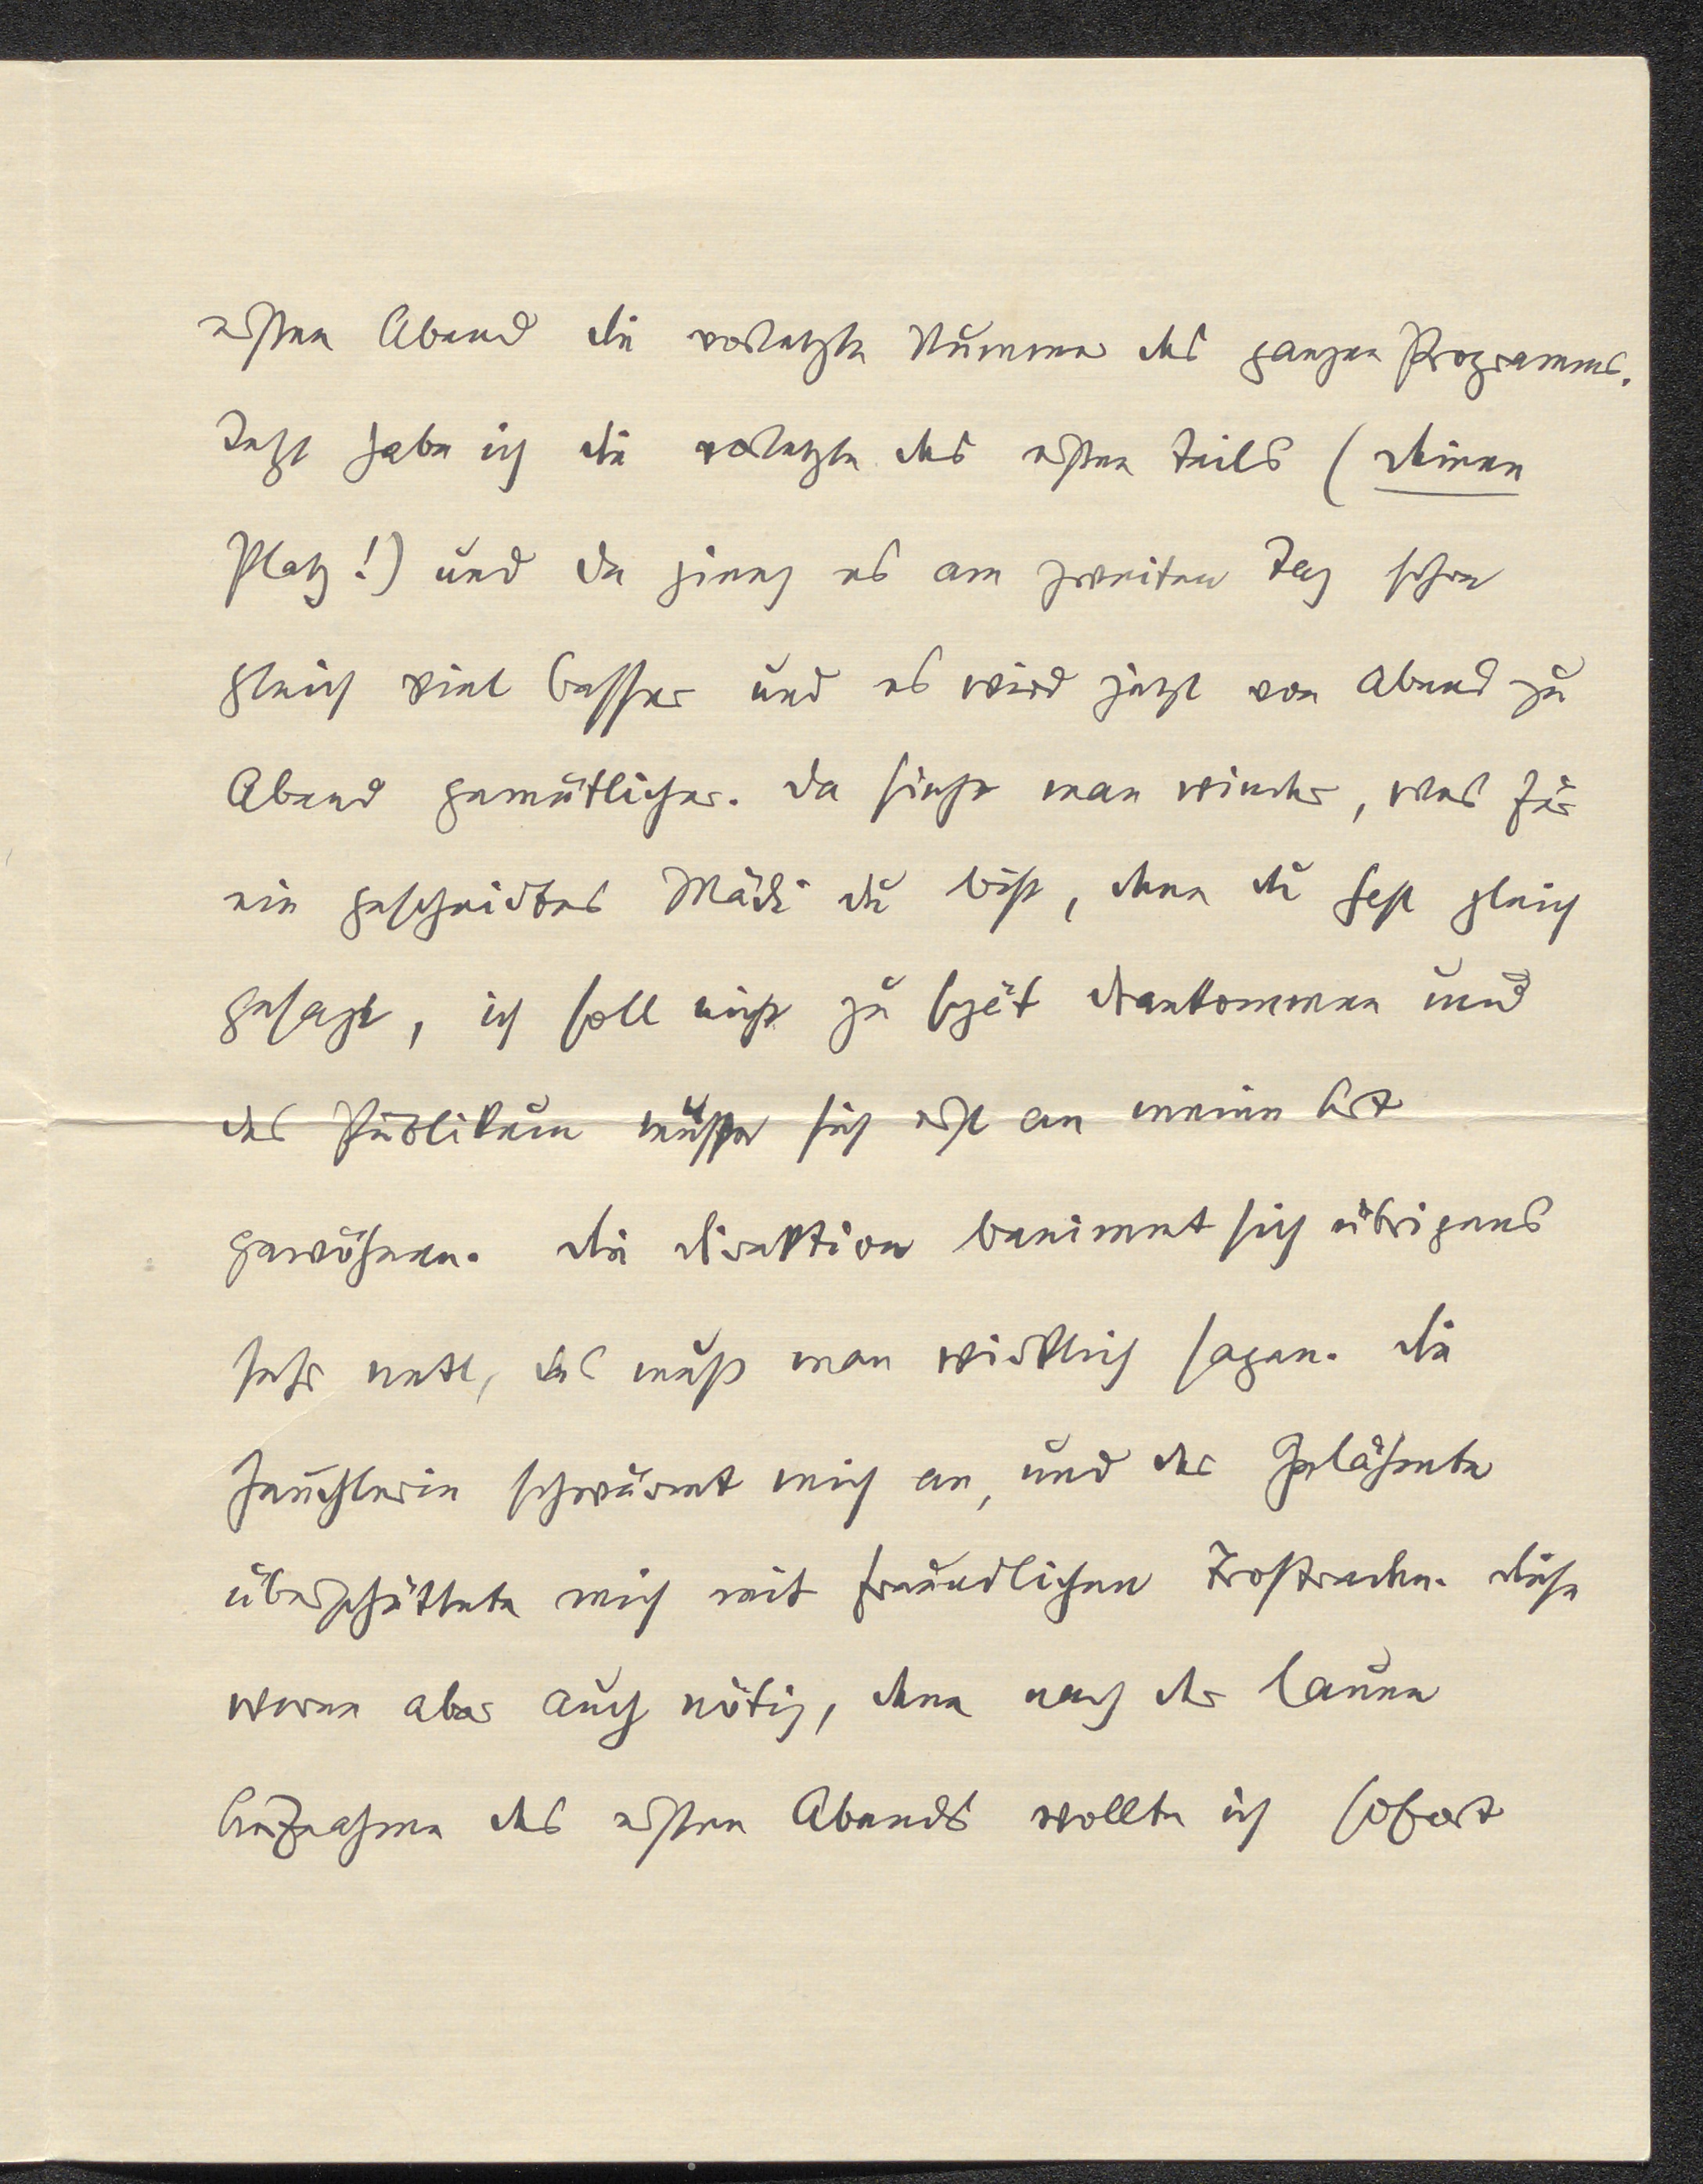 ersten Abend die vorletzte Nummer des ganzen Programms.
Jetzt habe ich die vorletzte des ersten Teils (deinen
Platz!) und da ging es am zweiten Tag schon
gleich viel besser und es wird jetzt von Abend zu
Abend gemütlicher. Da sieht man wieder, was für
ein gescheidtes Mädi du bist, denn du hast gleich
gesagt, ich soll nicht zu spät drankommen und
das Publikum müsse sich erst an meine Art
gewöhnen. Die Direktion benimmt sich übrigens
sehr nett, das muß man wirklich sagen. Die
schwärmt mich an, und der Gelähmte
überschüttete mich mit freundlichen Trostreden. Diese
waren aber auch nötig, denn nach der lauen
Aufnahme des ersten Abends wollte ich sofort